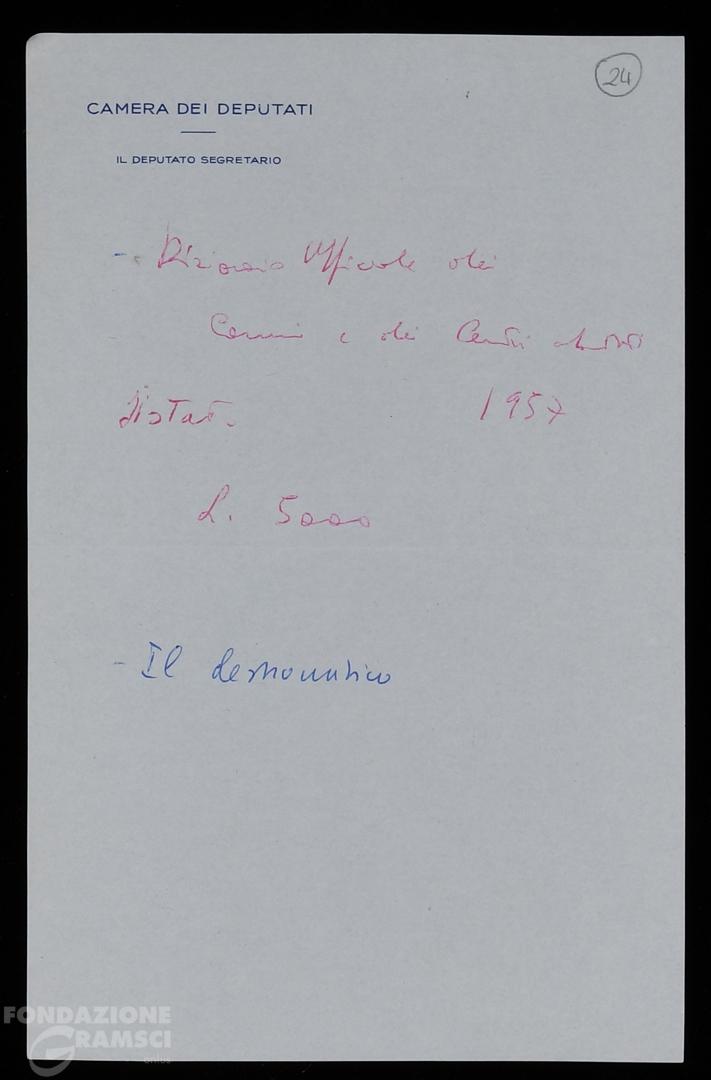 24
CAMERA DEI DEPUTATI
IL DEPUTATO SEGRETARIO
- Dizionario Ufficiale dei
Comuni e dei Centri abitati
Istat. 1957
L. 5000
- Il democratico
FONDAZIONE
GRAMSCI
onlus